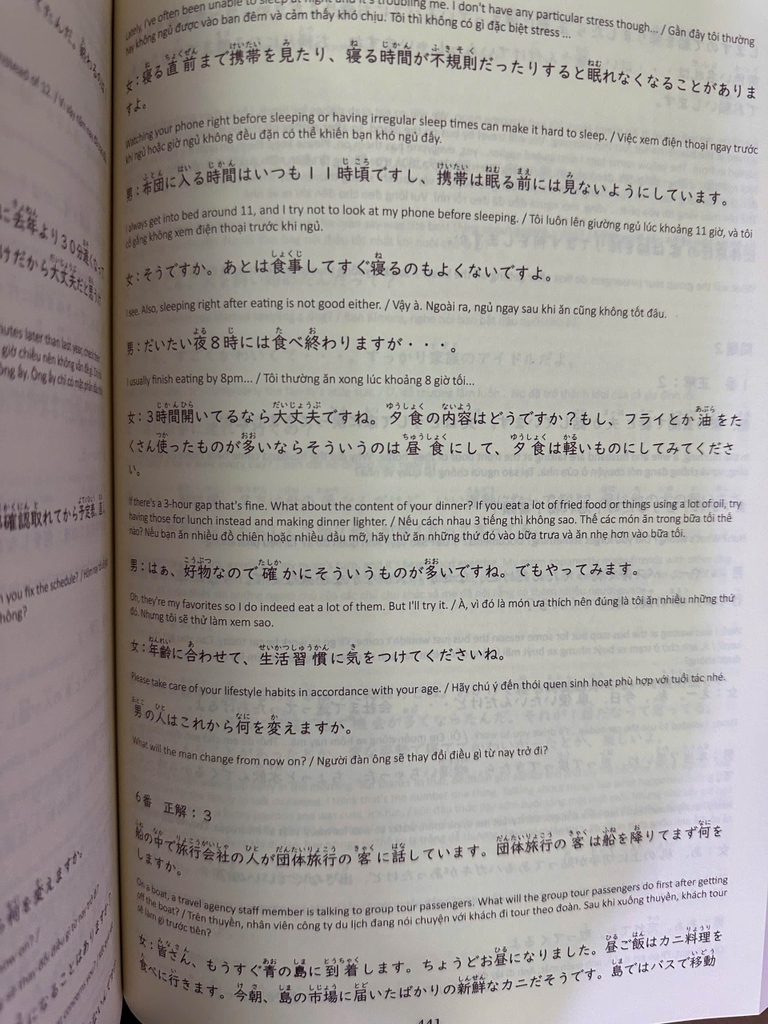 Lately, I've often been unable to sleep at night and it's troubling me. I don't have any particular stress though... / Gần đây tôi thường
hay không ngủ được vào ban đêm và cảm thấy khó chịu. Tôi thì không có gì đặc biệt stress ...
女：寝る直前まで携帯を見たり、寝る時間が不規則だったりすると眠れなくなることがありま
すよ。
Watching your phone right before sleeping or having irregular sleep times can make it hard to sleep. / Việc xem điện thoại ngay trước
khi ngủ hoặc giờ ngủ không đều đặn có thể khiến bạn khó ngủ đấy.
男：布団に入る時間はいつも１１時頃ですし、携帯は眠る前には見ないようにしています。
I always get into bed around 11, and I try not to look at my phone before sleeping. / Tôi luôn lên giường ngủ lúc khoảng 11 giờ, và tôi
cố gắng không xem điện thoại trước khi ngủ.
女：そうですか。あとは食事してすぐ寝るのもよくないですよ。
I see. Also, sleeping right after eating is not good either. / Vậy à. Ngoài ra, ngủ ngay sau khi ăn cũng không tốt đâu.
男：だいたい夜８時には食べ終わりますが・・・。
I usually finish eating by 8pm... / Tôi thường ăn xong lúc khoảng 8 giờ tối...
女：３時間開いてるなら大丈夫ですね。夕食の内容はどうですか？もし、フライとか油をた
くさん使ったものが多いならそういうのは昼食にして、夕食は軽いものにしてみてくださ
い。
If there's a 3-hour gap that's fine. What about the content of your dinner? If you eat a lot of fried food or things using a lot of oil, try
having those for lunch instead and making dinner lighter. / Nếu cách nhau 3 tiếng thì không sao. Thế các món ăn trong bữa tối thế
nào? Nếu bạn ăn nhiều đồ chiên hoặc nhiều dầu mỡ, hãy thử ăn những thứ đó vào bữa trưa và ăn nhẹ hơn vào bữa tối.
男：はぁ、好物なので確かにそういうものが多いですね。でもやってみます。
Oh, they're my favorites so I do indeed eat a lot of them. But I'll try it. / À, vì đó là món ưa thích nên đúng là tôi ăn nhiều những thứ
đó. Nhưng tôi sẽ thử làm xem sao.
女：年齢に合わせて、生活習慣に気をつけてくださいね。
Please take care of your lifestyle habits in accordance with your age. / Hãy chú ý đến thói quen sinh hoạt phù hợp với tuổi tác nhé.
男の人はこれから何を変えますか。
What will the man change from now on? / Người đàn ông sẽ thay đổi điều gì từ nay trở đi?
６番 正解：３
船の中で旅行会社の人が団体旅行の客に話しています。団体旅行の客は船を降りてまず何を
しますか。
On a boat, a travel agency staff member is talking to group tour passengers. What will the group tour passengers do first after getting
off the boat? / Trên thuyền, nhân viên công ty du lịch đang nói chuyện với khách đi tour theo đoàn. Sau khi xuống thuyền, khách tour
sẽ làm gì trước tiên?
女：皆さん、もうすぐ青の島に到着します。ちょうどお昼になりました。昼ご飯はカニ料理を
食べに行きます。今朝、島の市場に届いたばかりの新鮮なカニだそうです。島ではバスで移動
441